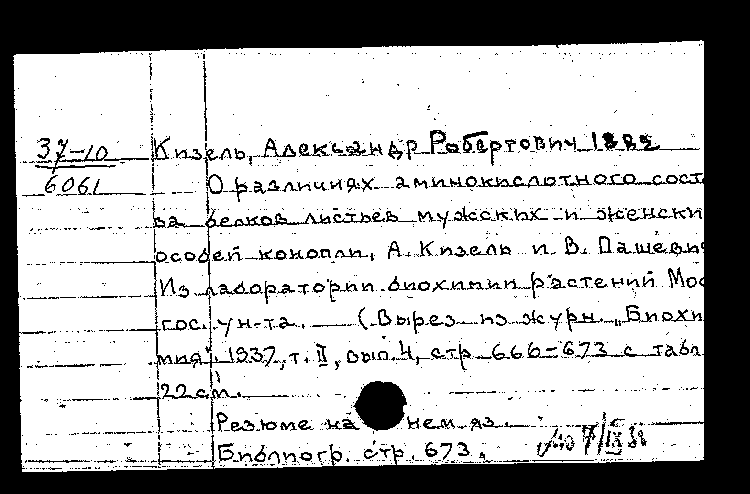 37-10 Кизель, Александр Робертович 1882
6061 О различиях аминокислотного сост
ва белков листьев мужских и женски
особей конопли, А. Кизель и В. Пашеви
Из лаборатории биохимии растений Мос
гос. ун-та. (Вырез из журн. „Биохи
мия". 1937, т. II, вып. 4, стр 666-673 с табл
22 см.
Резюме на нем яз.
Библиогр. стр. 673.